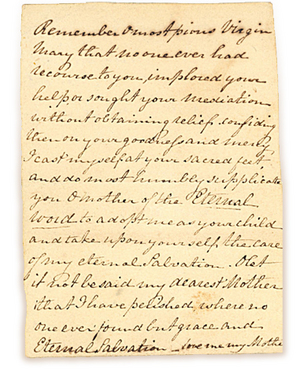 Remember O most pious Virgin
Mary that no one ever had
recourse to you, implored your
help or sought your mediation
without obtaining relief. confiding
then on your goodness and mercy
I cast myself at your sacred feet
and do most humbly supplicate
you O mother of the Eternal
word to adopt me as your child
and take upon yourself the care
of my eternal Salvation. O let
it not be said my dearest Mother
that I have perished where no
one ever found but grace and
Eternal Salvation my Mothe